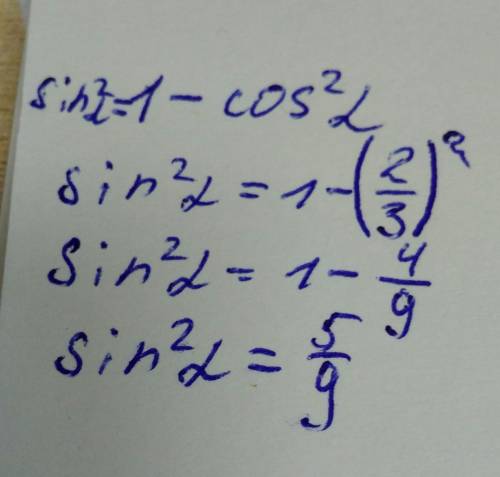 sin²α=1-cos²α
sin²α=1-(2/3)²
sin²α=1-4/9
sin²α=5/9